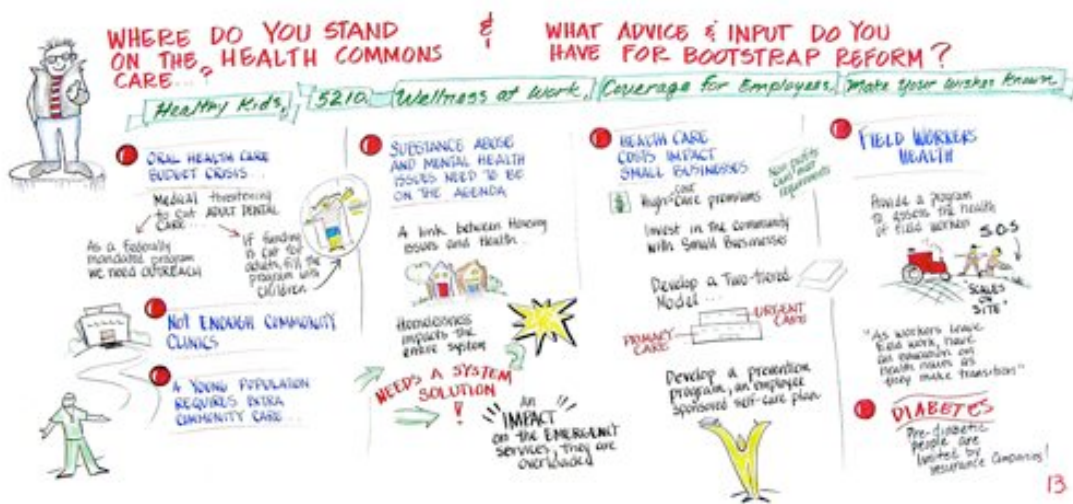 WHERE DO YOU STAND
ON THE HEALTH COMMONS
CARE...?
&
WHAT ADVICE & INPUT DO YOU
HAVE FOR BOOTSTRAP REFORM?
Healthy Kids,
5210,
Wellness at Work,
Coverage for Employees,
Make Your Wishes Known
ORAL HEALTH CARE
BUDGET CRISIS...
Medical threatening
to cut ADULT DENTAL
CARE...
As a federally
mandated program
WE NEED OUTREACH
If funding
is cut for
adults, fill the
program with
children
NOT ENOUGH COMMUNITY
CLINICS
A YOUNG POPULATION
REQUIRES EXTRA
COMMUNITY CARE...
SUBSTANCE ABUSE
AND MENTAL HEALTH
ISSUES NEED TO BE
ON THE AGENDA
A link between Housing
issues and Health...
Homelessness
impacts the
entire system
NEEDS A SYSTEM
SOLUTION
!
An
IMPACT
on the EMERGENCY
services, they are
overloaded
HEALTH CARE
COSTS IMPACT
SMALL BUSINESSES
Non profits
requirements
$
High-cost
Care premiums
Invest in the community
with Small Businesses
Develop a Two-tiered
Model...
URGENT CARE
PRIMARY
CARE
Develop a prevention
program, an employee
sponsored self-care plan
FIELD WORKERS
HEALTH
Provide a program
to assess the health
of field workers
S.O.S
"SCALES
ON
SITE"
"As workers leave
field work, have
an education on
health issues as
they make transition"
DIABETES
Pre-diabetic
people are
limited by
insurance companies!
13